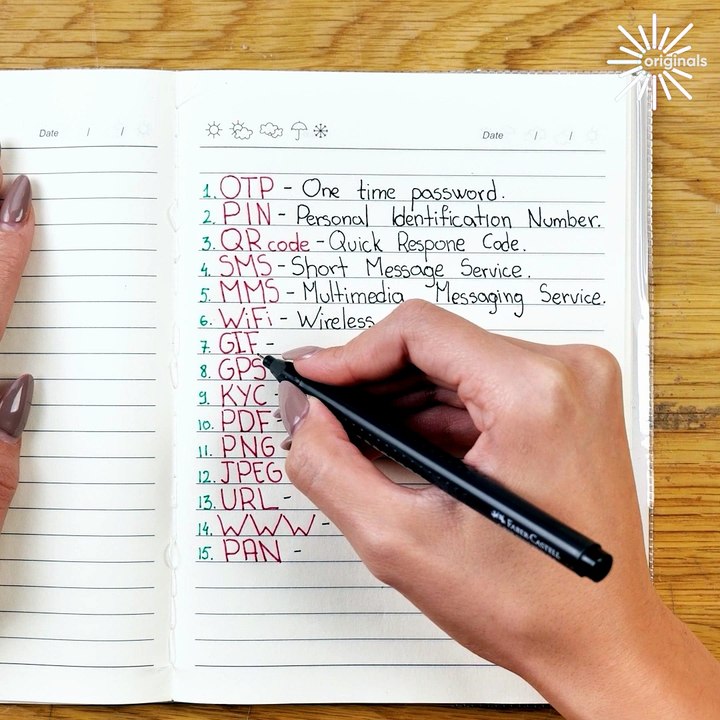 originals
Date / /
Date / /
1. OTP - One time password.
2. PIN - Personal Identification Number.
3. QR code - Quick Respone Code.
4. SMS - Short Message Service.
5. MMS - Multimedia Messaging Service.
6. WiFi - Wireless
7. GIF -
8. GPS
9. KYC -
10. PDF -
11. PNG
12. JPEG
13. URL -
14. WWW -
15. PAN -
FABER-CASTELL